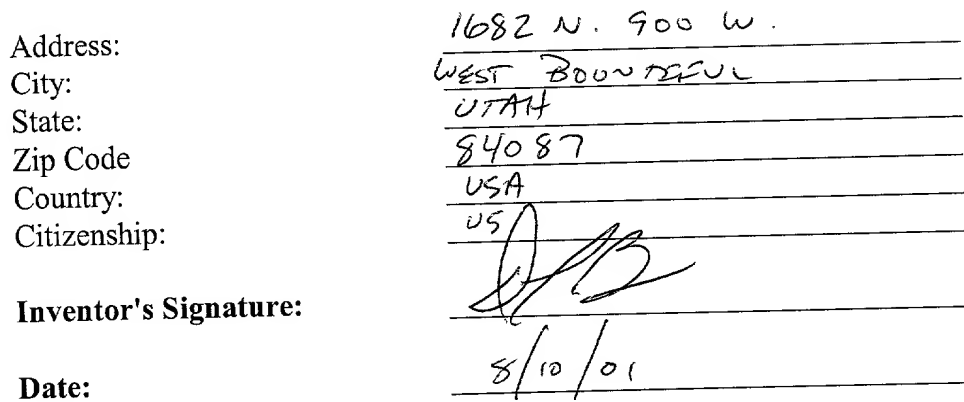 Address: 1682 N. 900 W.
City: WEST BOUNTIFUL
State: UTAH
Zip Code 84087
Country: USA
Citizenship: US
Inventor's Signature:
Date: 8/10/01